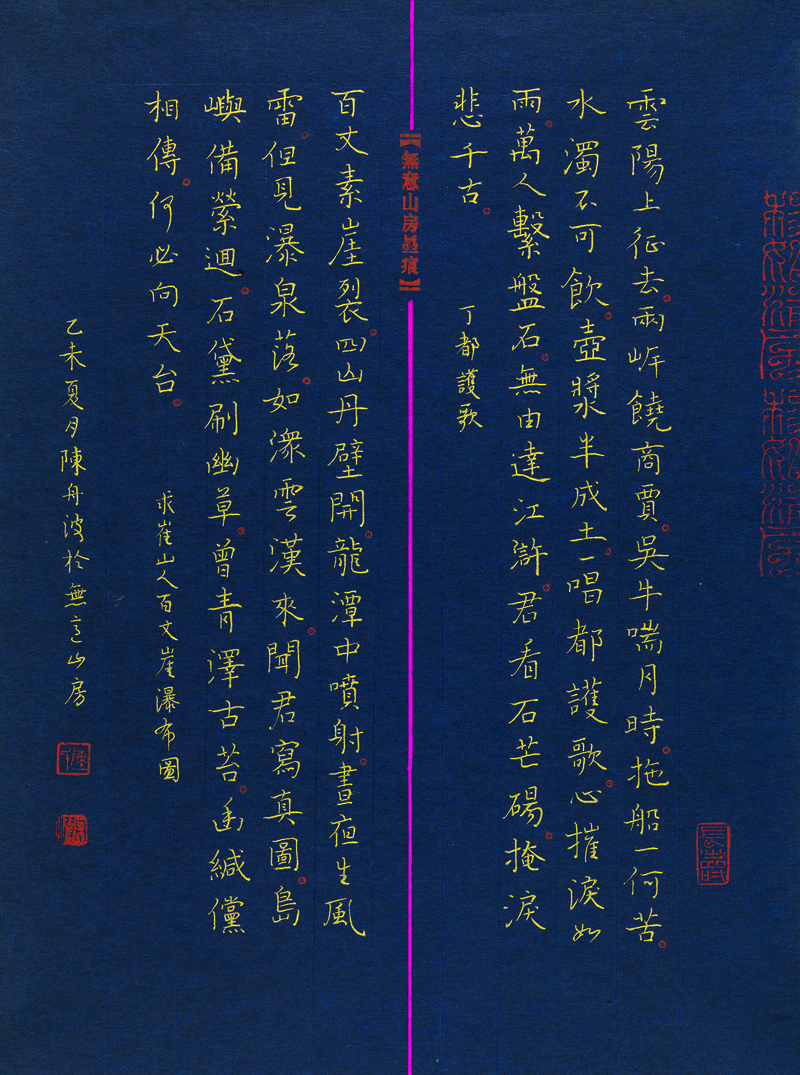 雲陽上征去。兩岸饒商賈。吳牛喘月時。拖船一何苦。
水濁不可飲。壺漿半成土。一唱都護歌。心摧淚如
雨。萬人繫盤石。無由達江滸。君看石芒碭。掩淚
悲千古。
丁都護歌
【無意山房墨痕】
百丈素崖裂。四山丹壁開。龍潭中噴射。晝夜生風
雷。但見瀑泉落。如潨雲漢來。聞君寫真圖。島
嶼備縈迴。石黛刷幽草。曾青澤古苔。幽緘儻
相傳。何必向天台。
求崔山人百丈崖瀑布圖
乙未夏月陳舟波於無意山房